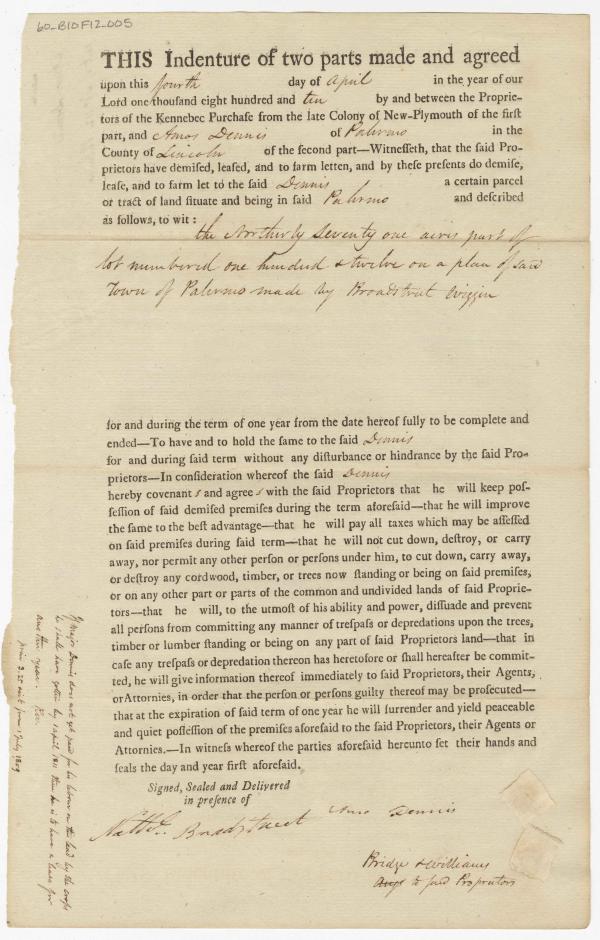 60-B10F12-005
THIS Indenture of two parts made and agreed
upon this fourth day of April in the year of our
Lord one thouſand eight hundred and ten by and between the Proprie-
tors of the Kennebec Purchaſe from the late Colony of New-Plymouth of the firſt
part, and Amos Dennis of Palermo in the
County of Lincoln of the second part—Witneſſeth, that the ſaid Pro-
prietors have demiſed, leaſed, and to farm letten, and by theſe preſents do demiſe,
leaſe, and to farm let to the ſaid Dennis a certain parcel
or tract of land ſituate and being in ſaid Palermo and deſcribed
as follows, to wit:
the Northerly Seventy one acres part of
lot numbered one hundred & twelve on a plan of said
Town of Palermo made by Broadstreet Wiggin
for and during the term of one year from the date hereof fully to be complete and
ended—To have and to hold the ſame to the ſaid Dennis
for and during ſaid term without any diſturbance or hindrance by the ſaid Pro-
prietors—In conſideration whereof the ſaid Dennis
hereby covenant s and agree s with the ſaid Proprietors that he will keep poſ-
ſeſſion of ſaid demiſed premiſes during the term aforeſaid—that he will improve
the ſame to the beſt advantage—that he will pay all taxes which may be aſſeſſed
on ſaid premiſes during ſaid term—that he will not cut down, deſtroy, or carry
away, nor permit any other perſon or perſons under him, to cut down, carry away,
or deſtroy any cordwood, timber, or trees now ſtanding or being on ſaid premiſes,
or on any other part or parts of the common and undivided lands of ſaid Proprie-
tors—that he will, to the utmoſt of his ability and power, diſſuade and prevent
all perſons from committing any manner of treſpaſs or depredations upon the trees,
timber or lumber ſtanding or being on any part of ſaid Proprietors land—that in
caſe any treſpaſs or depredation thereon has heretofore or ſhall hereafter be commit-
ted, he will give information thereof immediately to ſaid Proprietors, their Agents,
or Attornies, in order that the perſon or perſons guilty thereof may be proſecuted—
that at the expiration of ſaid term of one year he will ſurrender and yield peaceable
and quiet poſſeſſion of the premiſes aforeſaid to the ſaid Proprietors, their Agents or
Attornies.—In witneſs whereof the parties aforeſaid hereunto ſet their hands and
ſeals the day and year firſt aforeſaid.
Signed, Sealed and Delivered
in preſence of
Amos Dennis
Nathl. Bradstreet
Bridge & Williams
to said Proprietors
If Major Dennis does not get paid for his labour on this land by the crops
he shall have gotten by 1 april 1811 then he is to have a lease for
another year.
price 3.25 with from 1 July 1809